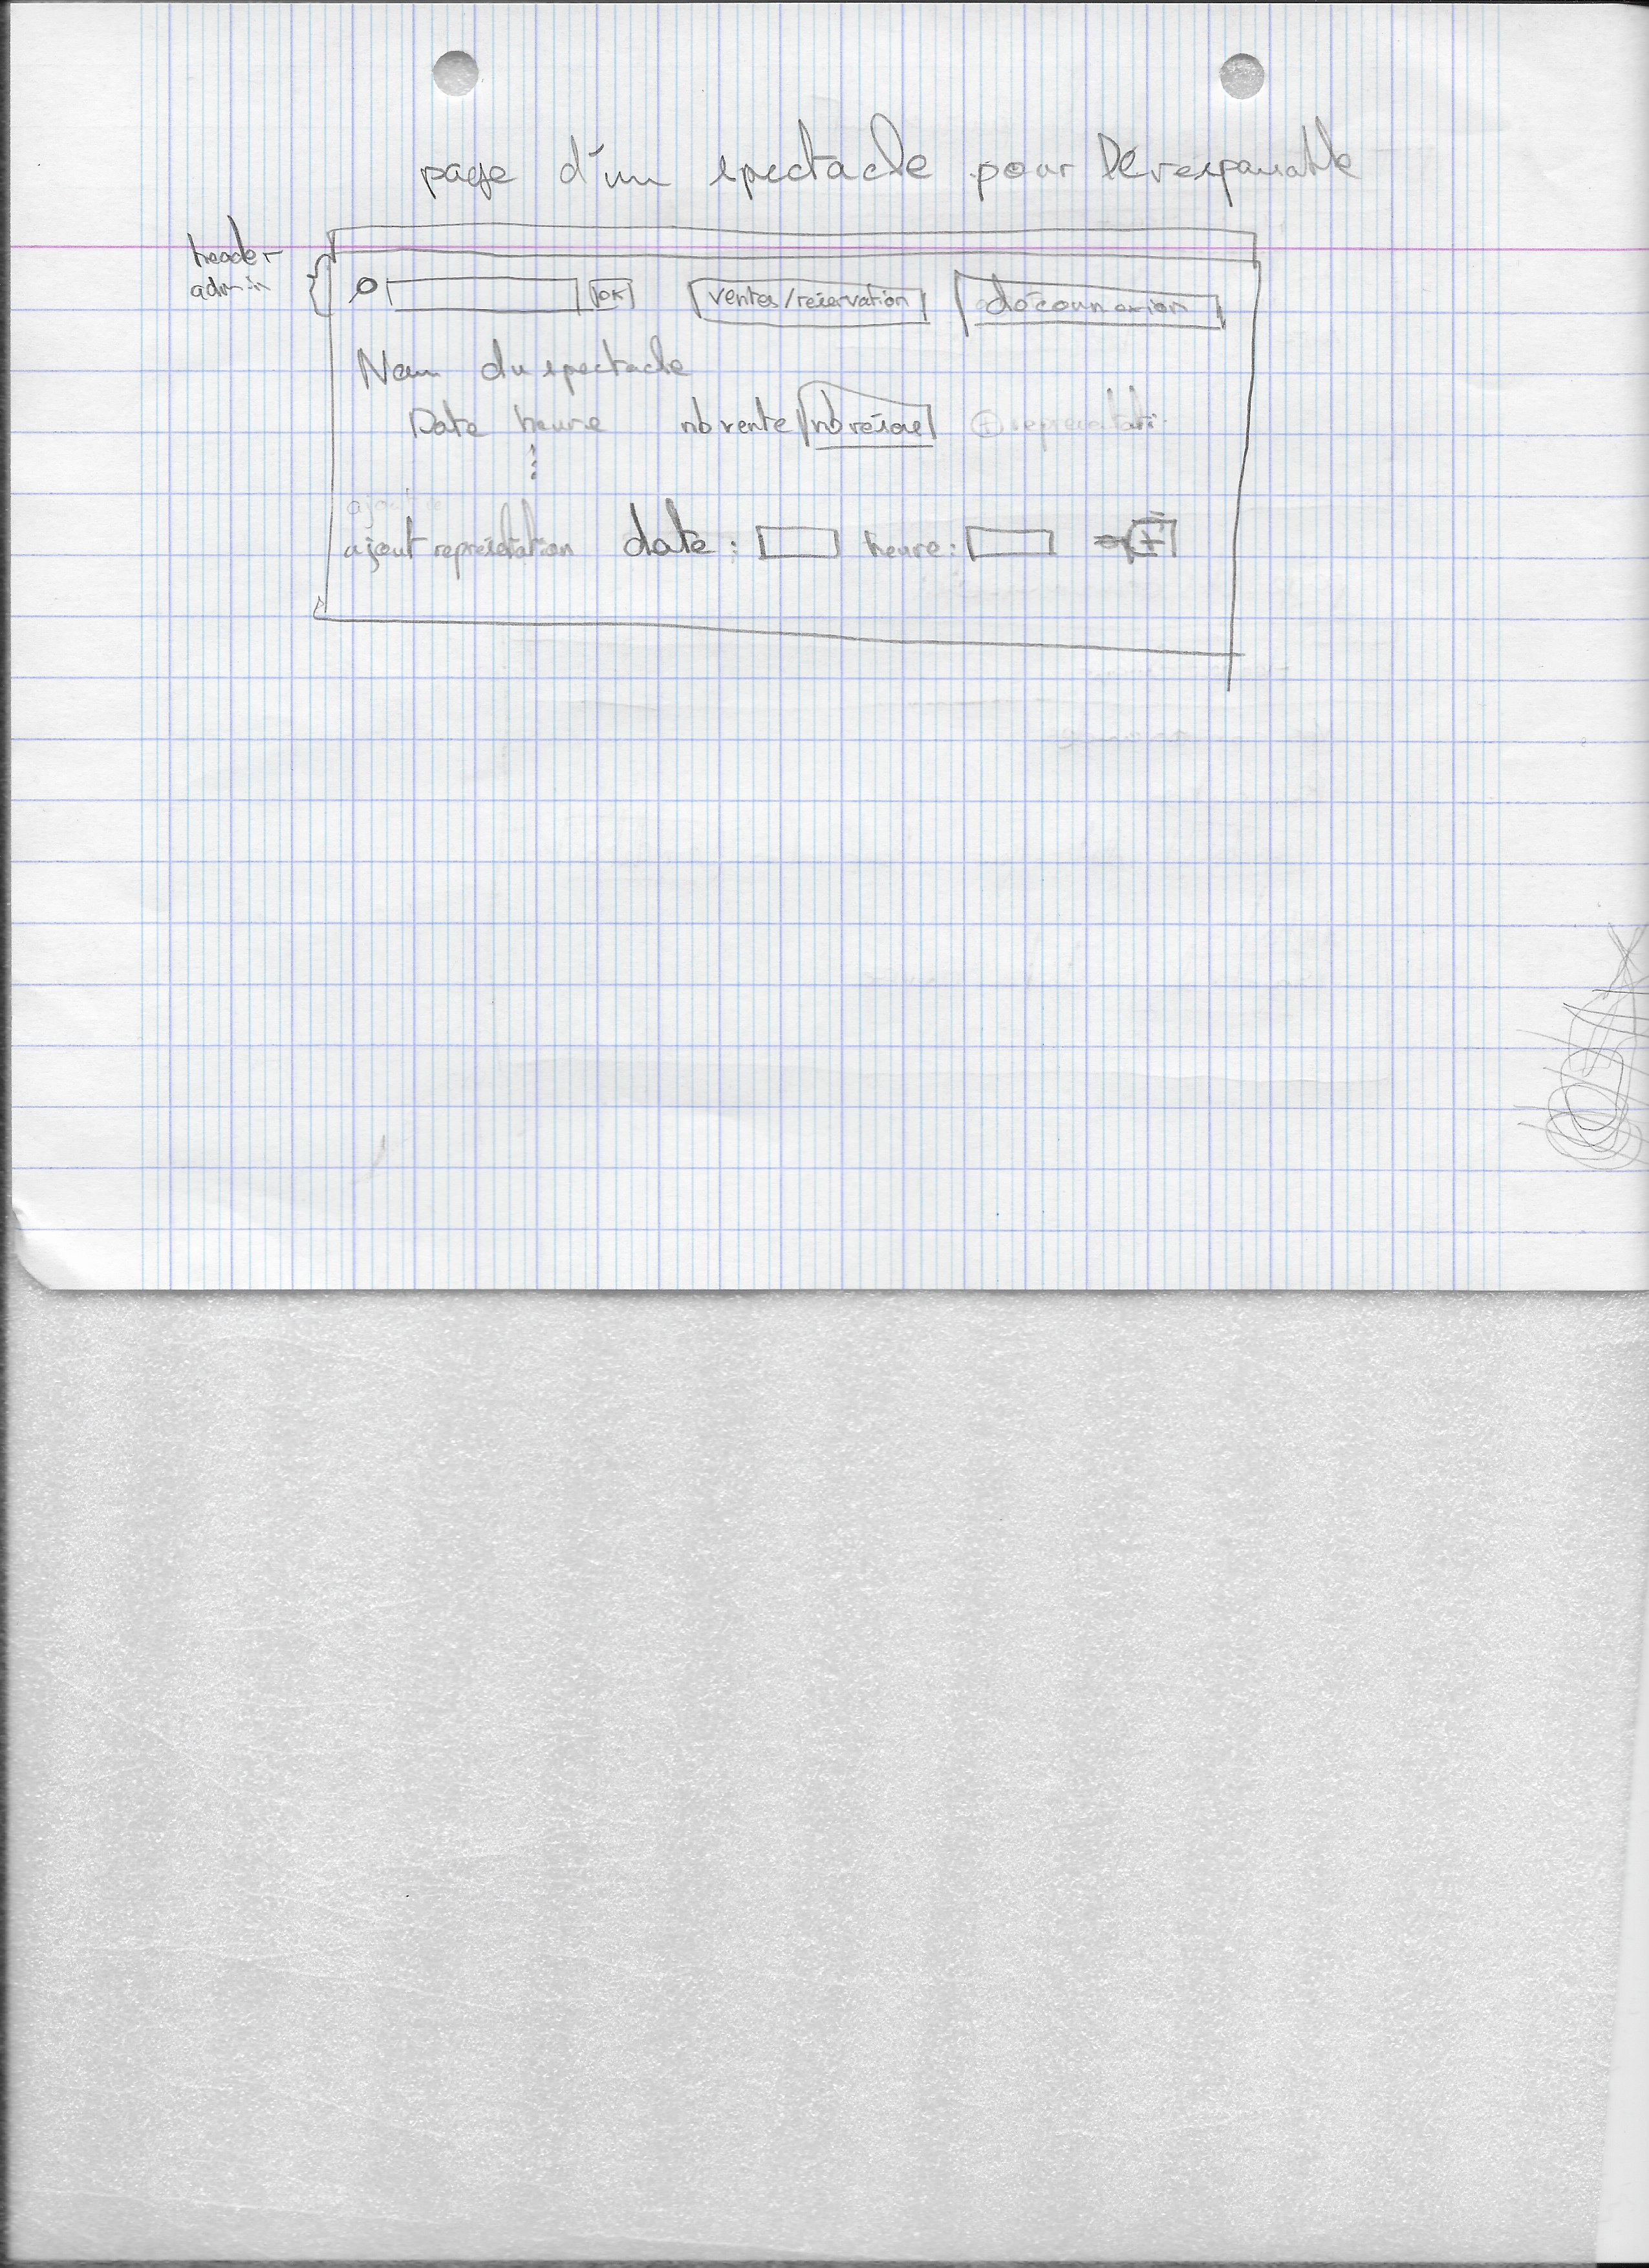 page d'un spectacle pour le responsable
header
admin
OK ventes/réservation déconnexion
Nom du spectacle
Date heure nb vente nb réservé
ajout représentation date : heure : +